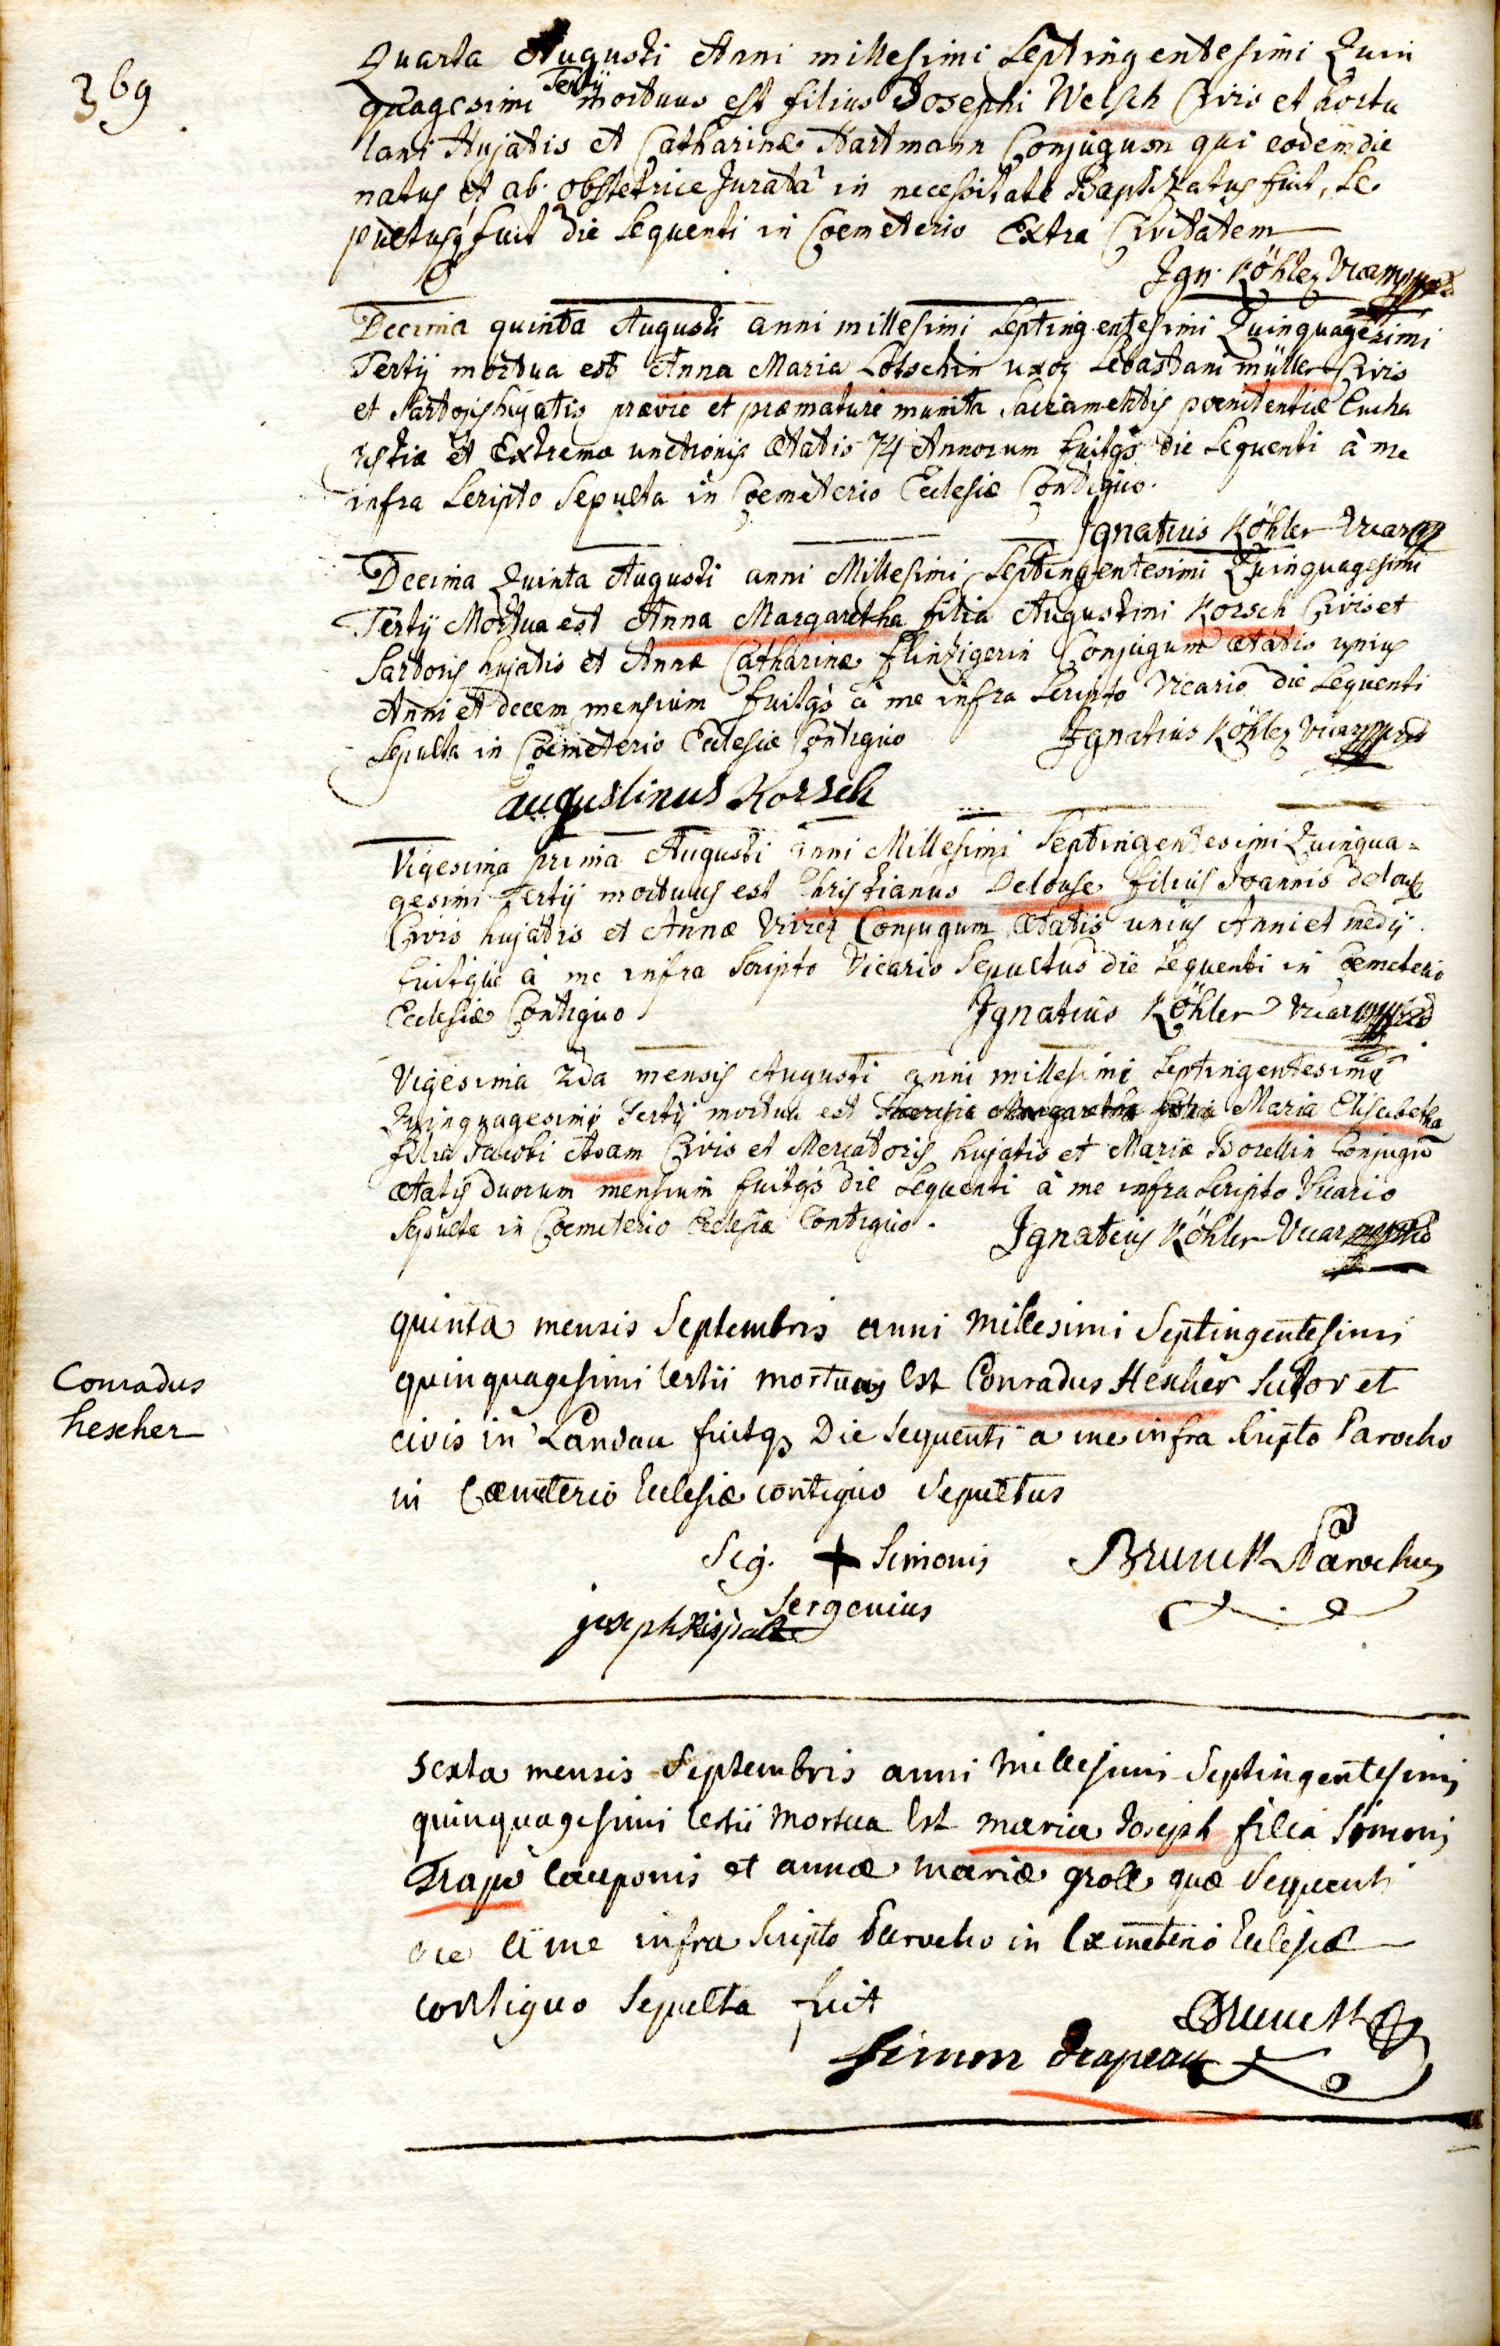 369.
Quarta Augusti Anni millesimi Septingentesimi Quin
quagesimi Tertij mortuus est filius Josephi Welsch Civis et hortu
lani Hujatis et Catharinæ Hartmann Conjugum qui eodem die
natus et ab obstetrice Jurata in necessitate Baptizatus fuit, Se
pultusq fuit die Sequenti in Coemeterio Extra Civitatem
Ign. Köhler Vicarius
Decima quinta Augusti anni millesimi Septingentesimi Quinquagesimi
Tertij mortua est Anna Maria Lotschin uxor Sebastiani müller Civis
et Sartoris hujatis prævie et præmature munita Sacramentis poenitentiæ Eucha
ristiæ et Extremæ unctionis ætatis 74 Annorum fuitqs die Sequenti à me
infra Scripto Sepulta in Coemeterio Ecclesiæ Contiguo.
Ignatius Köhler Vicar
Decima Quinta Augusti anni Millesimi Septingentesimi Quinquagesimi
Tertij Mortua est Anna Margaretha filia Augustini Korsch Civis et
Sartoris hujatis et Annæ Catharinæ flintzigerin Conjugum ætatis unius
Anni et decem mensium fuitqs à me infra Scripto Vicario die Sequenti
Sepulta in Coemeterio Ecclesiæ Contiguo
Ignatius Köhler Vicar
augustinus Korsch
Vigesima prima Augusti anni Millesimi Septingentesimi Quinqua-
gesimi Tertij mortuus est Christianus Delouse filius Joannis delouse
Civis hujatis et Annæ Vivier Conjugum ætatis unius Anni et medij.
fuitque à me infra Scripto Vicario Sepultus die Sequenti in Coemeterio
Ecclesiæ Contiguo
Ignatius Köhler Vicar
Vigesima 2da mensis Augusti anni millesimi Septingentesimi
Quinquagesimi Tertij mortua est Maria Elisabetha
filia Jacobi Adam Civis et Mercatoris hujatis et Mariæ Borellin Conjugū
ætatis duorum mensium fuitqs die Sequenti à me infra Scripto Vicario
Sepulta in Coemeterio Ecclesiæ Contiguo.
Ignatius Köhler Vicar
Conradus
hescher
quinta mensis Septembris anni millesimi Septingentesimi
quinquagesimi tertii mortuus Est Conradus Hescher Sutor et
civis in Landau fuitqs Die Sequenti a me infra Scripto Parocho
in Cæmeterio Ecclesiæ contiguo Sepultus
Sig. + Simonis
Brunck Parochus
Sergenius
joseph
Sexta mensis Septembris anni millesimi Septingentesimi
quinquagesimi tertii mortua Est maria Joseph filia Simonis
Trapo cauponis et annæ mariæ groll quæ Sequenti
die a me infra Scripto Parocho in Cæmeterio Ecclesiæ
contiguo Sepulta fuit
Brunck
Simon drapeau